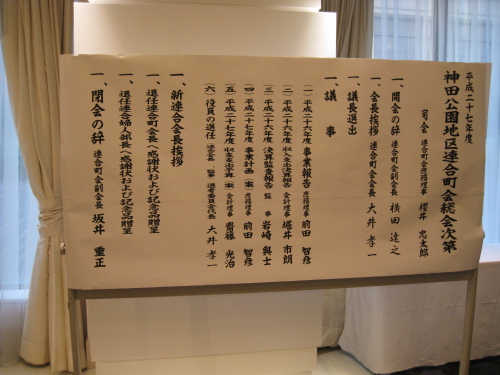 平成二十七年度
神田公園地区連合町会総会次第
司会 連合町会庶務理事 櫻井 忠太郎
一、開会の辞 連合町会副会長 横田 達之
一、会長挨拶 連合町会会長 大井 孝一
一、議長選出
一、議事
(一) 平成二十六年度事業報告 庶務理事 前田 智彦
(二) 平成二十六年度収入支出決算報告 会計理事 堀井 市朗
(三) 平成二十六年度決算監査報告 監事 岩崎 與士
(四) 平成二十七年度事業計画(案) 庶務理事 前田 智彦
(五) 平成二十七年度収支予算(案) 会計理事 齋藤 光治
(六) 役員の選任 選考委員会代表 大井 孝一
一、新連合会長挨拶
一、退任連合町会長へ感謝状および記念品贈呈
一、退任連合婦人部長へ感謝状および記念品贈呈
一、閉会の辞 連合町会副会長 坂井 重正